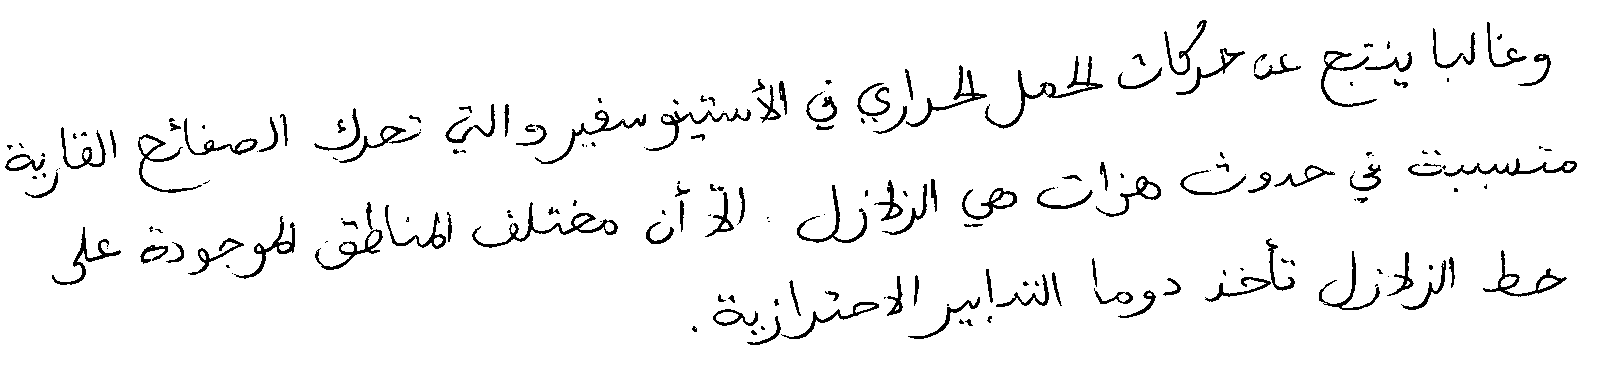 وغالبا ينتج عن حركات الحمل الحراري في الأستينوسفير والتي تحرك الصفائح القارية
متسببة في حدوث هزات هي الزلازل. إلا أن مختلف المناطق الموجودة على
خط الزلازل تأخذ دوما التدابير الاحترازية.